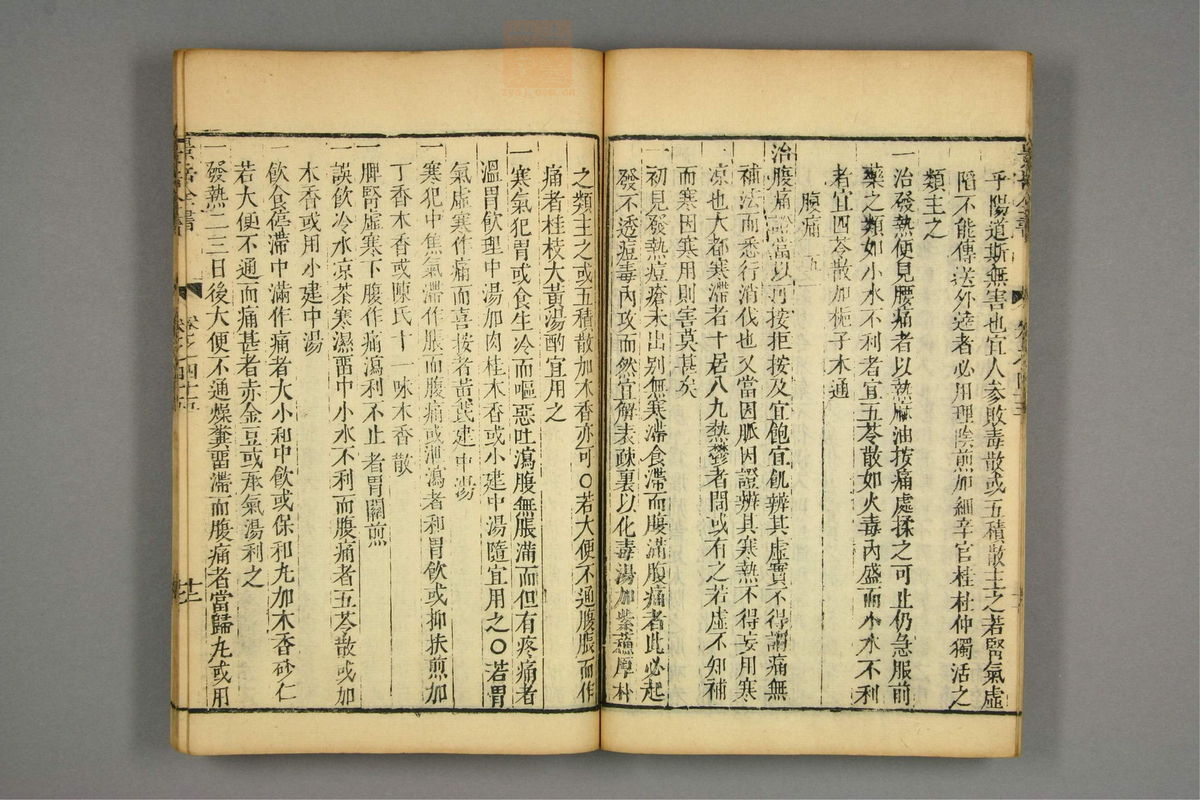 乎陽道斯無害也宜人參敗毒散或五積散主之若腎氣虛
陷不能傳送外達者必用理陰煎加細辛官桂杜仲獨活之
類主之
一治發熱便見腰痛者以熱麻油按痛處揉之可止仍急服前
藥之類如小水不利者宜五苓散如火毒內盛而小水不利
者宜四苓散加梔子木通
腹痛
治腹痛證當以可按拒按及宜飽宜飢辨其虛實不得謂痛無
補法而悉行消伐也又當因脈因證辨其寒熱不得妄用寒
凉也大都寒滯者十居八九熱鬱者間或有之若虛不知補
而寒因寒用則害莫甚矣
一初見發熱痘瘡未出别無寒滯食滯而腹滿腹痛者此必起
發不透痘毒內攻而然宜解表疎裏以化毒湯加紫蘊厚朴
之類主之或五積散加木香亦可○若大便不通腹脹而作
痛者桂枝大黃湯酌宜用之
一寒氣犯胃或食生冷而嘔惡吐瀉腹無脹滿而但有疼痛者
溫胃飲理中湯加肉桂木香或小建中湯隨宜用之○若胃
氣虛寒作痛而喜按者黃芪建中湯
一寒犯中焦氣滯作脹而腹痛或泄瀉者和胃飲或抑扶煎加
丁香木香或陳氏十一味木香散
一脾腎虛寒下腹作痛瀉利不止者胃關煎
一誤飲冷水凉茶寒濕畱中小水不利而腹痛者五苓散或加
木香或用小建中湯
一飲食停滯中滿作痛者大小和中飲或保和丸加木香砂仁
若大便不通而痛甚者赤金豆或承氣湯利之
一發熱二三日後大便不通燥糞畱滯而腹痛者當歸丸或用
景岳全書
卷之四十五